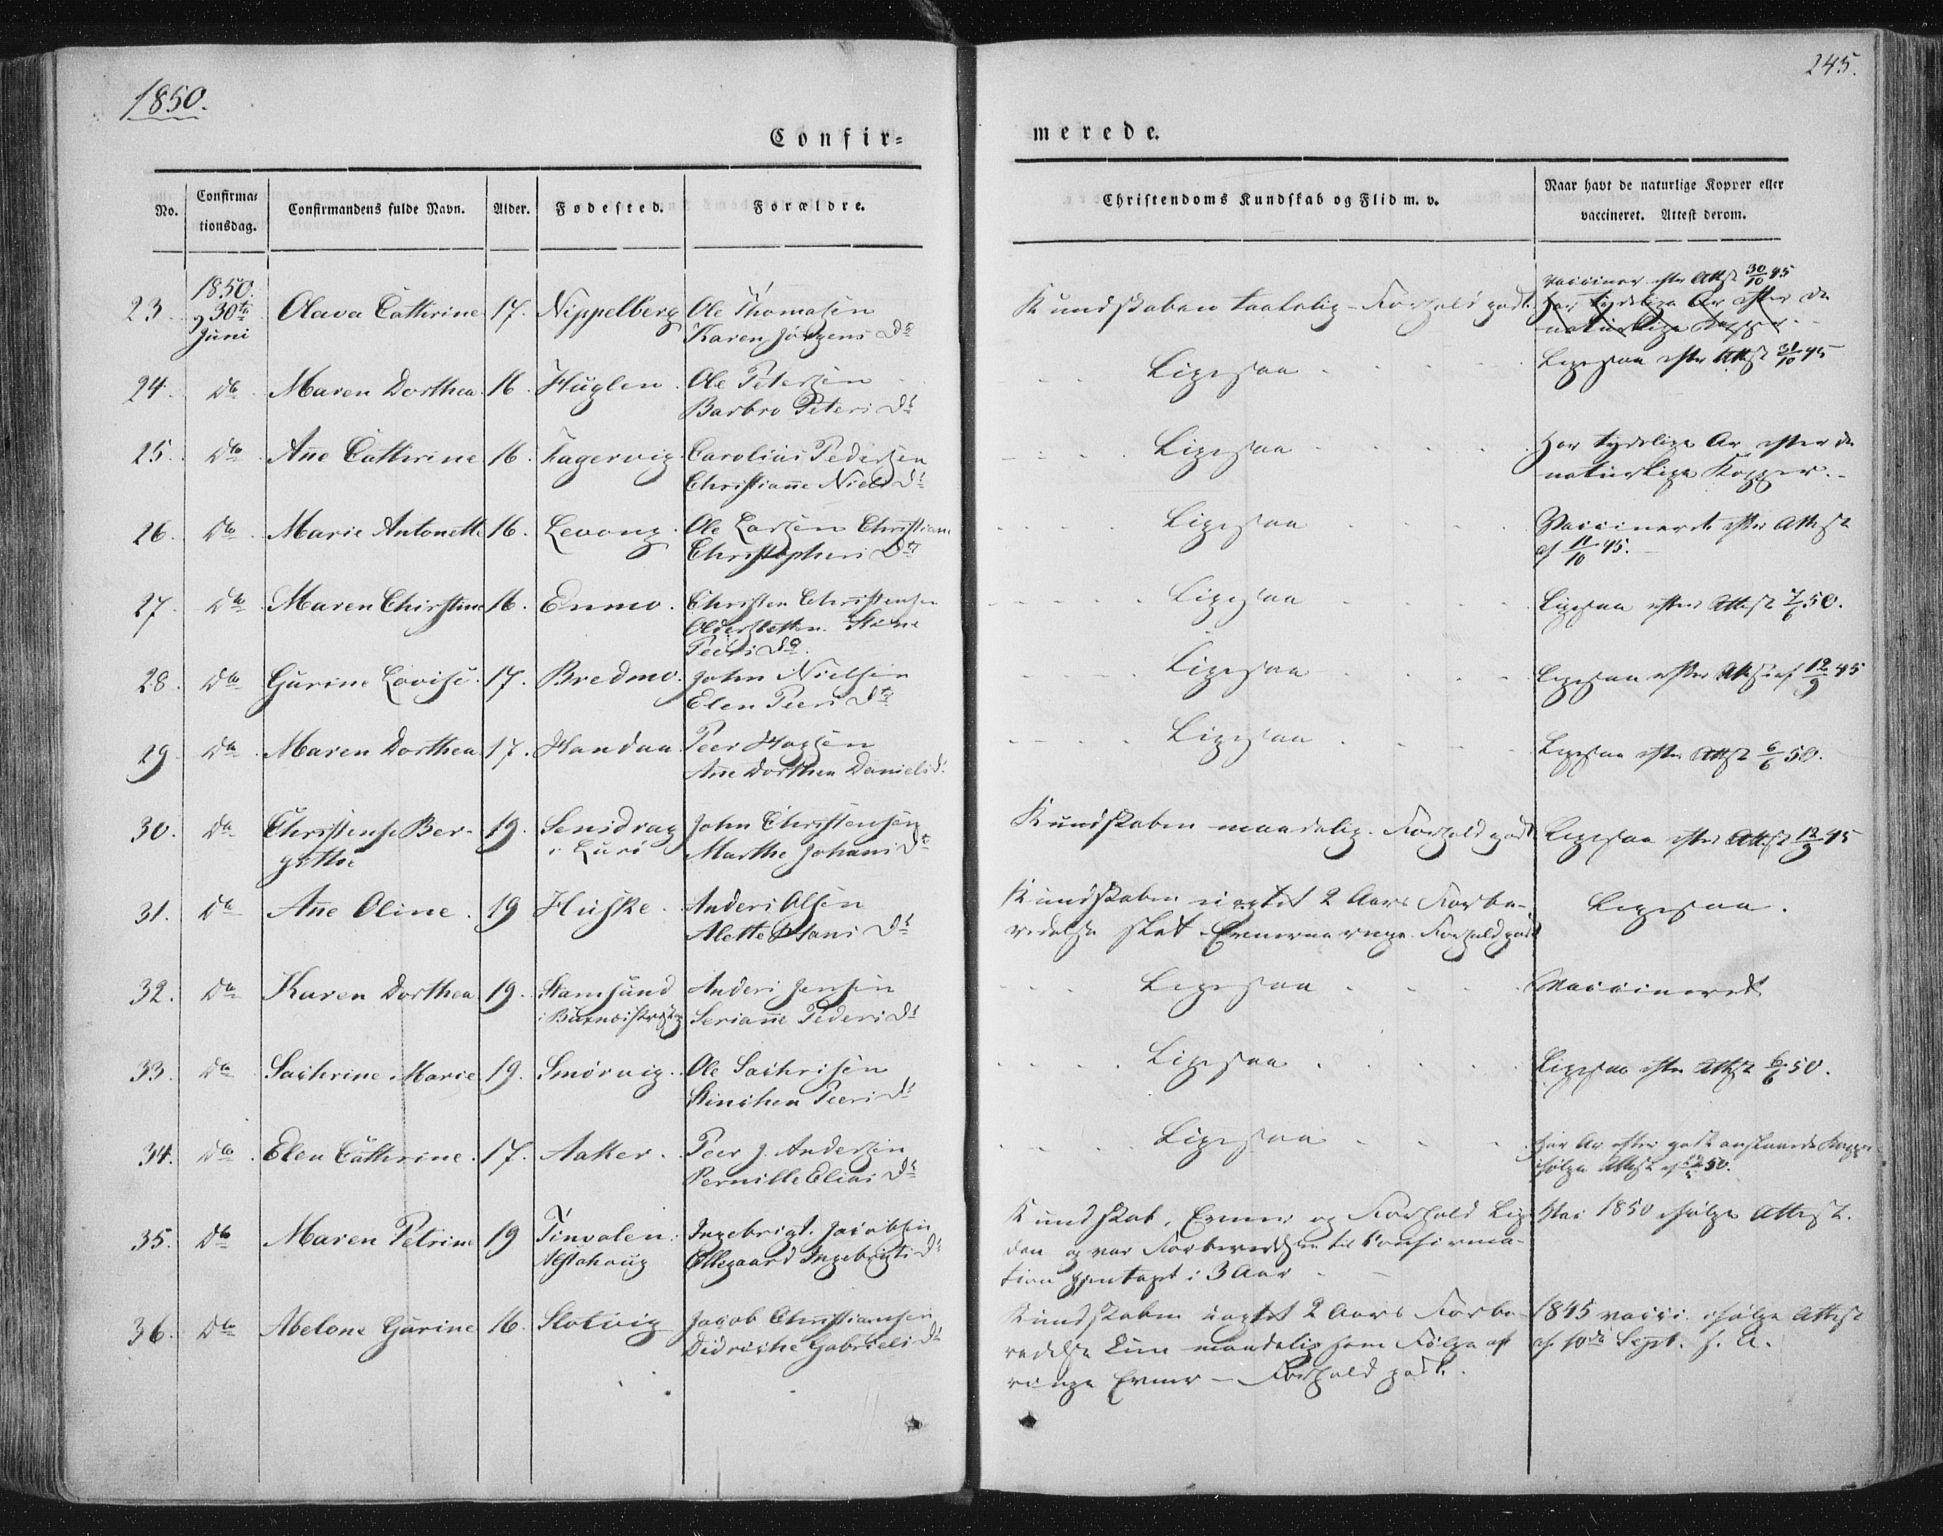 1850.
245.
Confir=
merede.
No.
Confirma=
tionsdag.
Confirmandens fulde Navn.
Alder.
Fødested.
Forældre.
Christendoms Kundskab og Flid m. v.
Naar havt de naturlige Kopper eller
vaccineret. Attest derom.
23. 1850. 30te Juni Olava Cathrine 17. Nippelberg Ole Thomasen
Karen Jørgens Dr
Kundskaben taalelig - Forhold godt.
efter Attest 30/10 45
har tydelige Ar efter de
naturlige Kopper.
24. Do Maren Dorthea 16. Huglen. Ole Petersen
Barbro Peters Dr
Ligesaa
Ligesaa efter Attest 31/10 45
25. Do Ane Cathrine 16. Fagervig Carolius Pedersen
Christiane Niels Dr
Ligesaa
har tydelige Ar efter de
naturlige Kopper.
26. Do Marie Antonette 16. Levong. Ole Larsen Christiane
Christophers Dr
Ligesaa
Vaccineret efter Attest
af 11/10 45.
27. Do Maren Christine 16. Enmo. Christen Christensen
Stine
Peers Dr.
Ligesaa
Ligesaa efter Attest 7/6 50.
28. Do Gurine Lovise. 17. Bredmo. John Nielsen
Elen Peers Dr
Ligesaa
Ligesaa efter Attest af 12/9 45
29. Do Maren Dorthea 17. Handaa Peer
Ane Dorthea Daniels Dr
Ligesaa
Ligesaa efter Attest 6/6 50.
30. Do Christense Ber-
gitthe
19. i Lurö John Christensen
Marthe Johans Dr
Kundskaben maadelig. Forhold godt
Ligesaa efter Attest 12/9 45
31. Do Ane Oline. 19 Huske. Anders Olsen
Alette Hans Dr
Kundskaben uagtet 2 Aars Forbe-
redelse slet. Evnerne ringe. Forhold godt
Ligesaa.
32. Do Karen Dorthea 19. Stamsund
Anders Jensen
Seriane Peders Dr
Ligesaa
Vaccineret
33. Do Sachrine Marie 19. Smörvig. Ole Sachrisen
Peers Dr
Ligesaa
Ligesaa efter Attest 6/6 50.
34. Do Elen Cathrine. 17. Aaker. Peer J. Andersen
Pernille Elias Dr
Ligesaa
har Ar efter godt anslaaede Kopper
ifølge Attest af 50.
35. Do Maren Petrine 19 Tinvalen.
Alstahoug
Ingebrigt. Jacobsen
Ollegaard Ingebrigts Dr
Kundskab, Evner og Forhold
og var Forberedelsen til Confirma-
tion gjentaget i 3 Aar
Mai 1850 ifølge Attest.
36. Do Abelone Gurine 16. Slotvig Jacob Christiansen
Didrikke Gabriels Dr
Kundskaben uagtet 2 Aars Forbe-
redelse kun maadelig som Følge af
ringe Evner - Forhold godt.
1845 vacci. ifølge Attest
af 10de Sept. s. A.